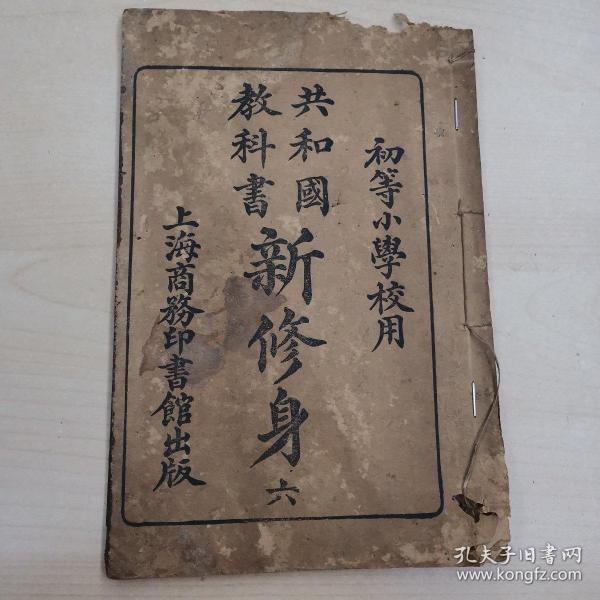 初等小學校用
共和國
教科書
新修身
六
上海商務印書館出版
孔夫子旧书网
www.kongfz.com